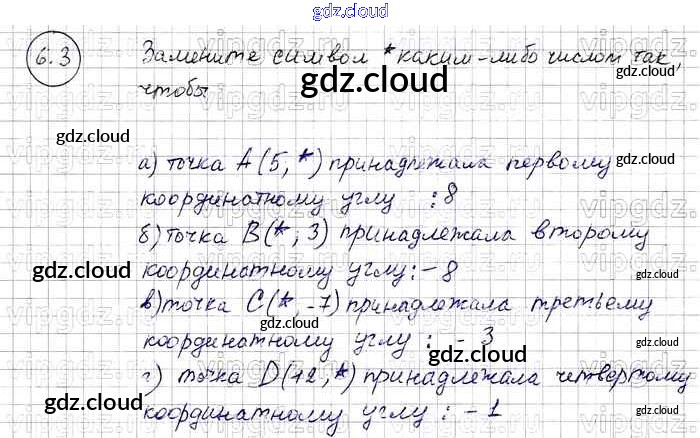 gdz.cloud
6.3 Замените символ * каким-либо числом так,
чтобы
gdz.cloud
gdz.cloud
а) точка A(5, *) принадлежала первому
координатному углу : 8
б) точка B(*; 3) принадлежала второму
координатному углу: -8
gdz.cloud gdz.cloud
в) точка C(*, -7) принадлежала третьему
gdz.cloud
координатному углу : -3
gdz.cloud
г) точка D(12, *) принадлежала четвертому
gdz.cloud gdz.cloud
координатному углу : -1